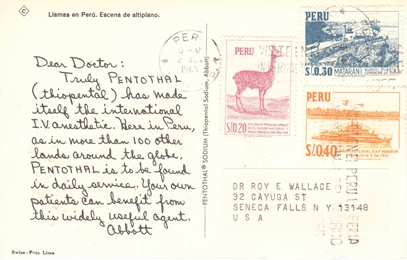 C
Llamas en Perú. Escena de altiplano.
Dear Doctor:
Truly PENTOTHAL
(thiopental) has made
itself the international
I.V. anesthetic. Here in Peru,
as in more than 100 other
lands around the globe,
PENTOTHAL is to be found
in daily service. Your own
patients can benefit from
this widely useful agent.
Abbott
Swiss-Foto Lima
PENTOTHAL® SODIUM (Thiopental Sodium, Abbott)
PER
1965
S/o.20
PERU
S/o.30
MATARANI
PERU
S/o.40
DR ROY E WALLACE
32 CAYUGA ST
SENECA FALLS N Y 13148
U S A